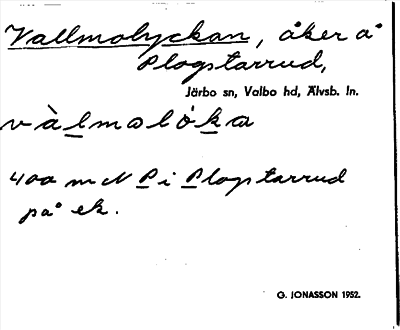 Vallmolyckan, åker å
Plogstarrud,
Järbo sn, Valbo hd, Älvsb. ln.
vàlmolòka
400 m N P i Plogstarrud
på ek.
G. JONASSON 1952.